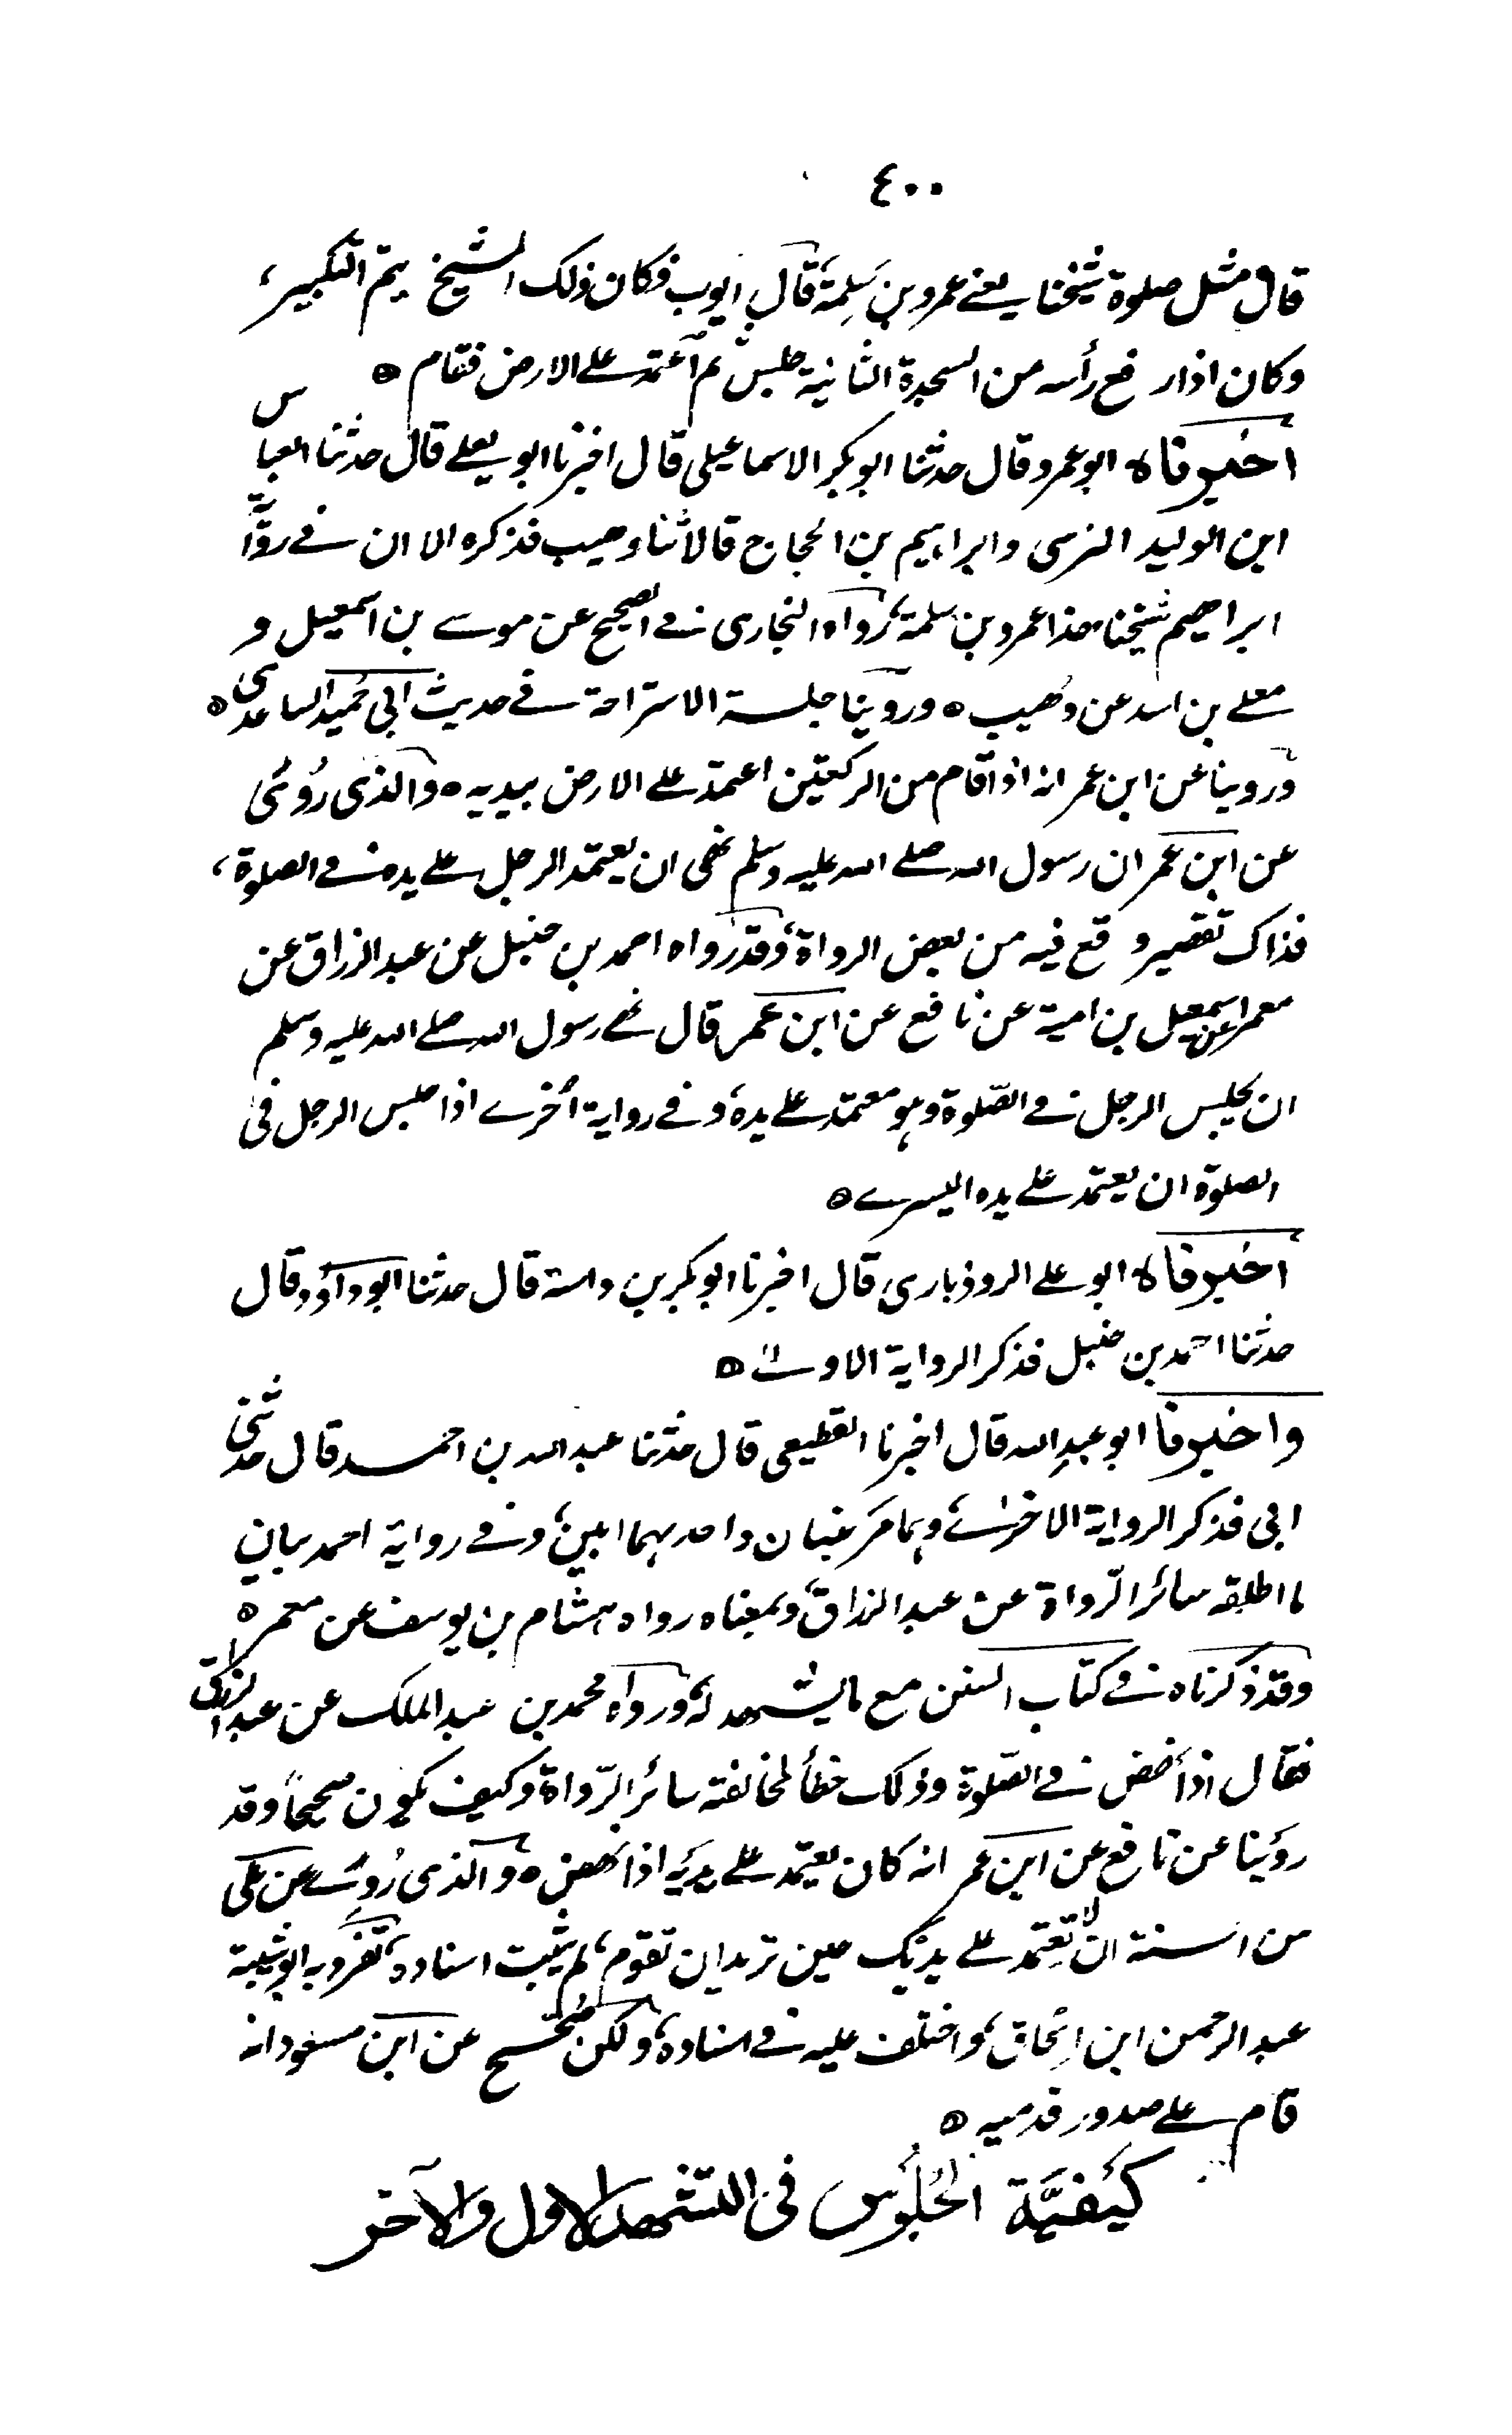 ٤٠٠
قال مثل صلوة شيخنا يعنے عمرو بن سَلِمة، قال ايوب فكان ذلك الشيخ يتم التكبير،
وكان اذا رفع رأسه من السجدة الثانية جلس ثم اعتمد علے الارض فقام ه
اخبرناه ابو عمرو قال حدثنا ابو بكر الاسماعيلى قال اخبرنا ابو يعلے قال حدثنا العباس
ابن الوليد النرسى وابراہيم بن الحجاج قالا ثنا وهيب فذكره الا ان فے رواية
ابراهيم شيخنا هذا عمرو بن سلمة، رواه البخارى فے الصحيح عن موسے بن اسمعيل و
معلے بن اسد عن وُهيب ه وروينا جلسة الاستراحة فے حديث ابى حُميد الساعدى ه
وروينا عن ابن عمر انه اذا قام من الركعتين اعتمد علے الارض بيديه ه والذى رُوىَ
عن ابن عمر ان رسول الله صلے الله عليه وسلم نهى ان يعتمد الرجل علے يده فے الصلوة،
فذاك تقصير وقع فيه من بعض الرواة، وقد رواه احمد بن حنبل عن عبد الرزاق عن
معمر عن اسمعيل بن امية عن نافع عن ابن عمر قال نهے رسول الله صلے الله عليه وسلم
ان يجلس الرجل فے الصّلوة وہو معتمد علے يده، وفے رواية اُخرے اذا جلس الرجل فى
الصلوة ان يعتمد علے يده اليسرے ه
اخبرناه ابو علے الروذبارى قال اخبرنا ابو بكر بن داسة قال حدثنا ابو داؤد قال
حدثنا احمد بن حنبل فذكر الرواية الاولے ه
واخبرنا ابو عبد الله قال اخبرنا القطيعى قال حدثنا عبد الله بن احمد قال حدثنى
ابى فذكر الرواية الاخرے، وہما مرغبان واحدہما ابين، وفے رواية احمد بيان
ما اطلقه سائر الرّواة عن عبد الرزاق، وبمعناه رواه ہشام بن يوسف عن معمر ه
وقد ذكرناه فے كتاب السنن مع ما يشهد له، ورواه محمد بن عبد الملك عن عبد الرزاق
فقال اذا نهض فے الصّلوة وذلك خطأ لمخالفته سائر الرّواة وكيف يكون صحيحاً وقد
روينا عن نافع عن ابن عمر انه كان يعتمد علے يديه اذا نهض ه والذى رُوِےَ عن على
من السنة ان لا تعتمد علے يديك حين تريد ان تقوم، لم يثبت اسناده، تفرد به ابو شيبة
عبد الرحمن ابن اسحاق، واختلف عليه فے اسناده، ولكن صحيح عن ابن مسعود انه
قام علے صدور قدميه ه
كَيفيَّة الجُلُوس فى التشهد الاول والآخر